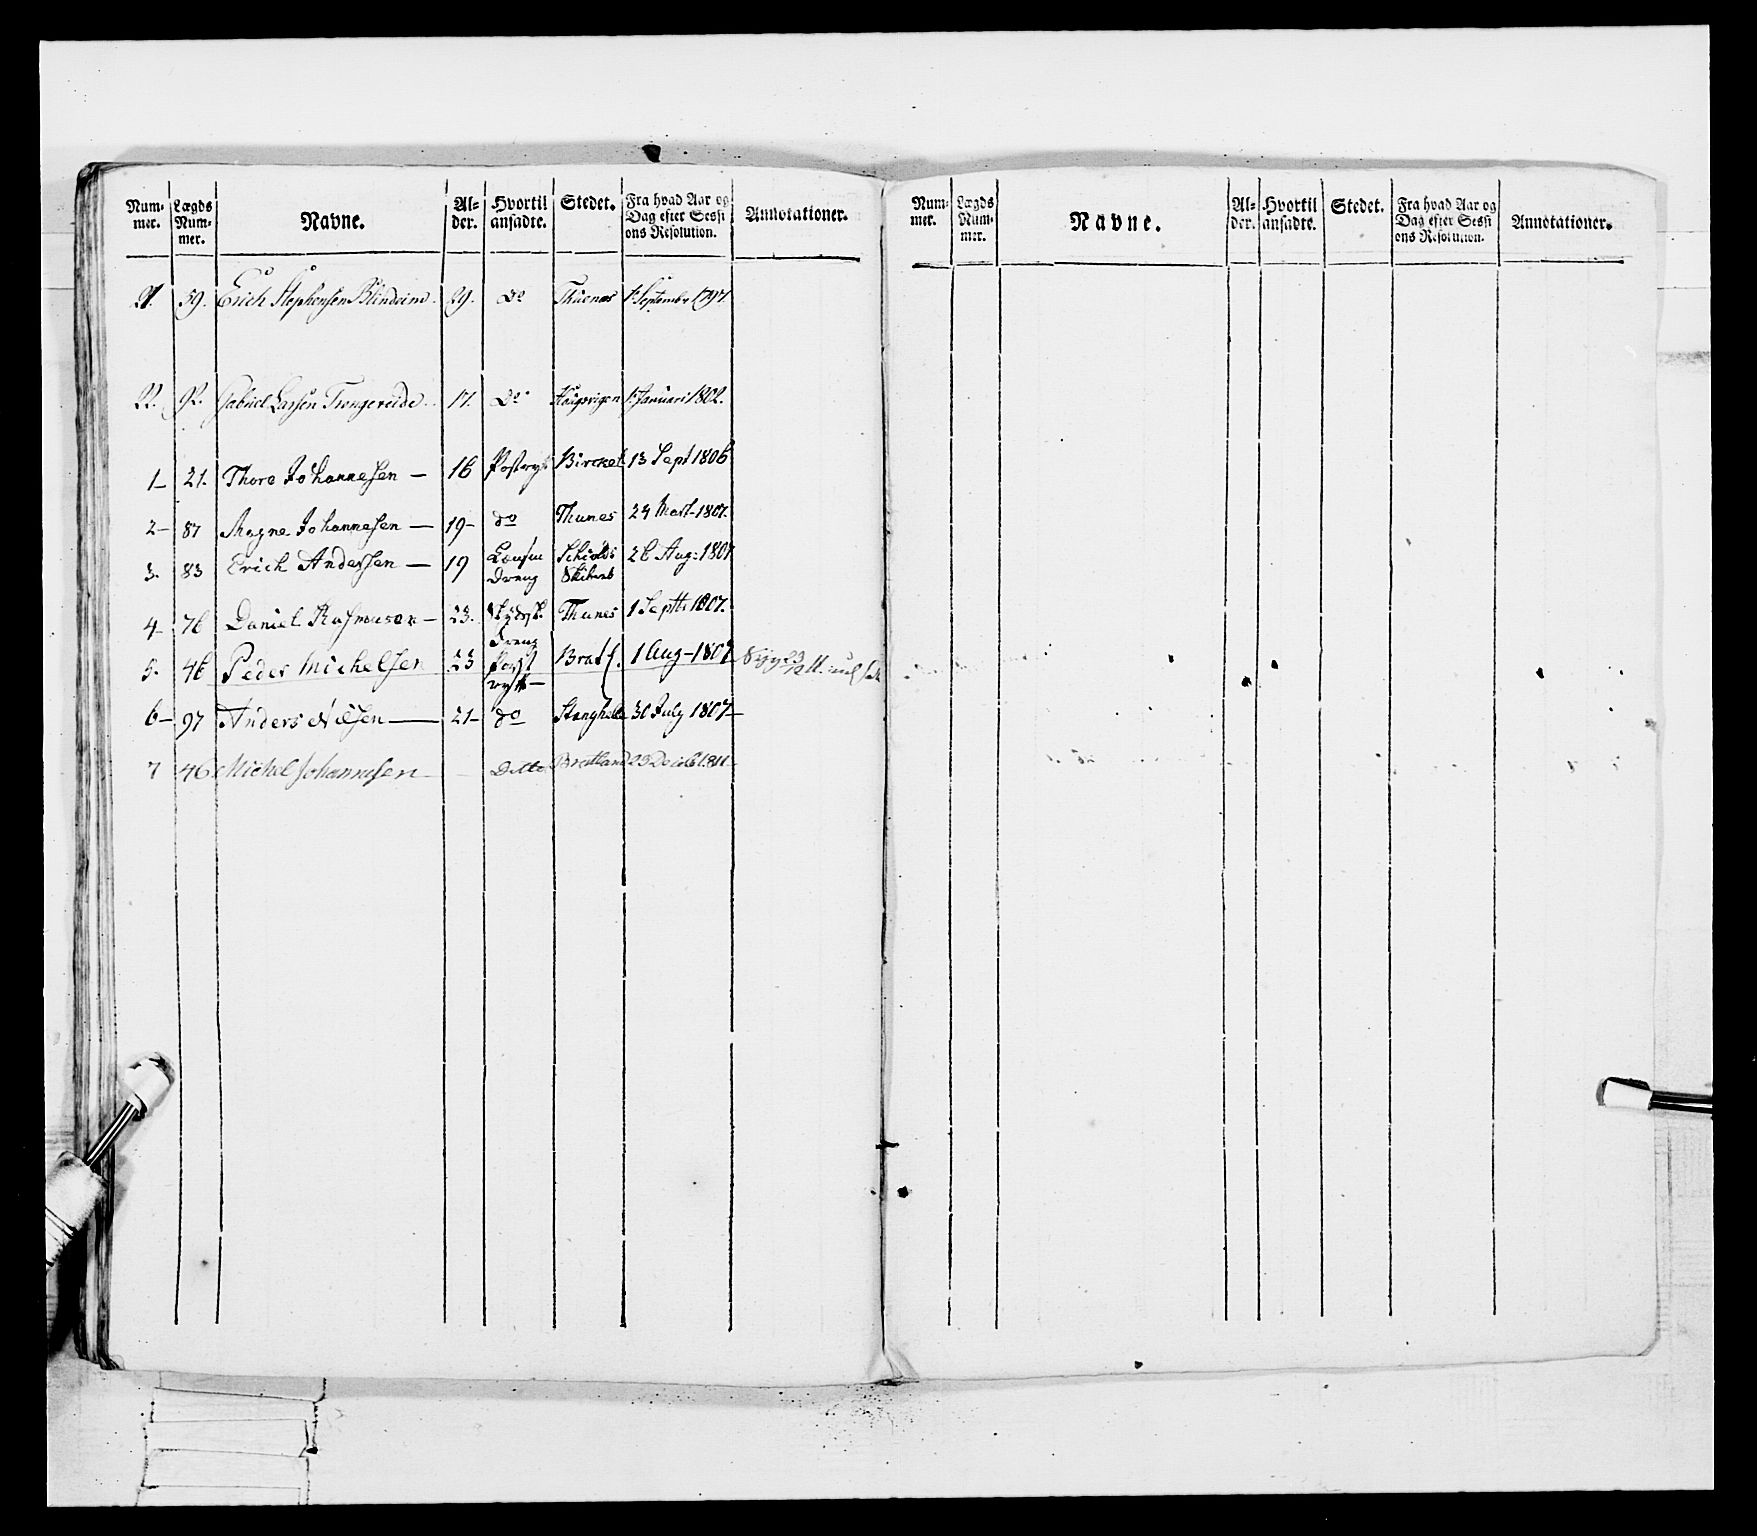 Num-
mer.
Lægds
Num-
mer.
Navne.
Al-
der.
Hvortil
ansadte.
Stedet.
Fra hvad Aar og
Dag efter Sessi
ons Resolution.
Annotationer.
21. 59. Erich Stephensen Blindeim. 29. do Thuenes 1 Septembr 1797.
22. 92. Gabriel Larsen Tvengereide. 17. do 1 Januari 1802.
1- 21. Thore Johannesen - 16 Birckel 13 Sept 1806
2- 87 Magne Johannesen - 19- do Thunes 24 Mart 1807.
3. 83 Erich Andersen - 19 26 Aug: 1807
Dreng
4- 76 Daniel Rasmusen - 23. Thunes 1 Septb 1807.
Dreng
5. 46 Peder Michelsen 23 Post Bratl. 1 Aug - 1807
ryt-
6- 97 Anders Nilsen - 21- do Stanghelle 30 July 1807-
7 46 Michel Johannesen - Ditto Bratland 1811
Num-
mer.
Lægds
Num-
mer.
Navne.
Al-
der.
Hvortil
ansadte.
Stedet.
Fra hvad Aar og
Dag efter Sessi
ons Resolution.
Annotationer.